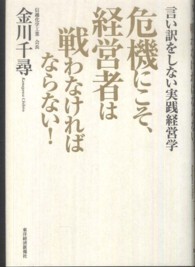 言い訳をしない実践経営学
危機にこそ、
経営者は
戦わなければ
ならない!
信越化学工業 会長
金川千尋
東洋経済新報社